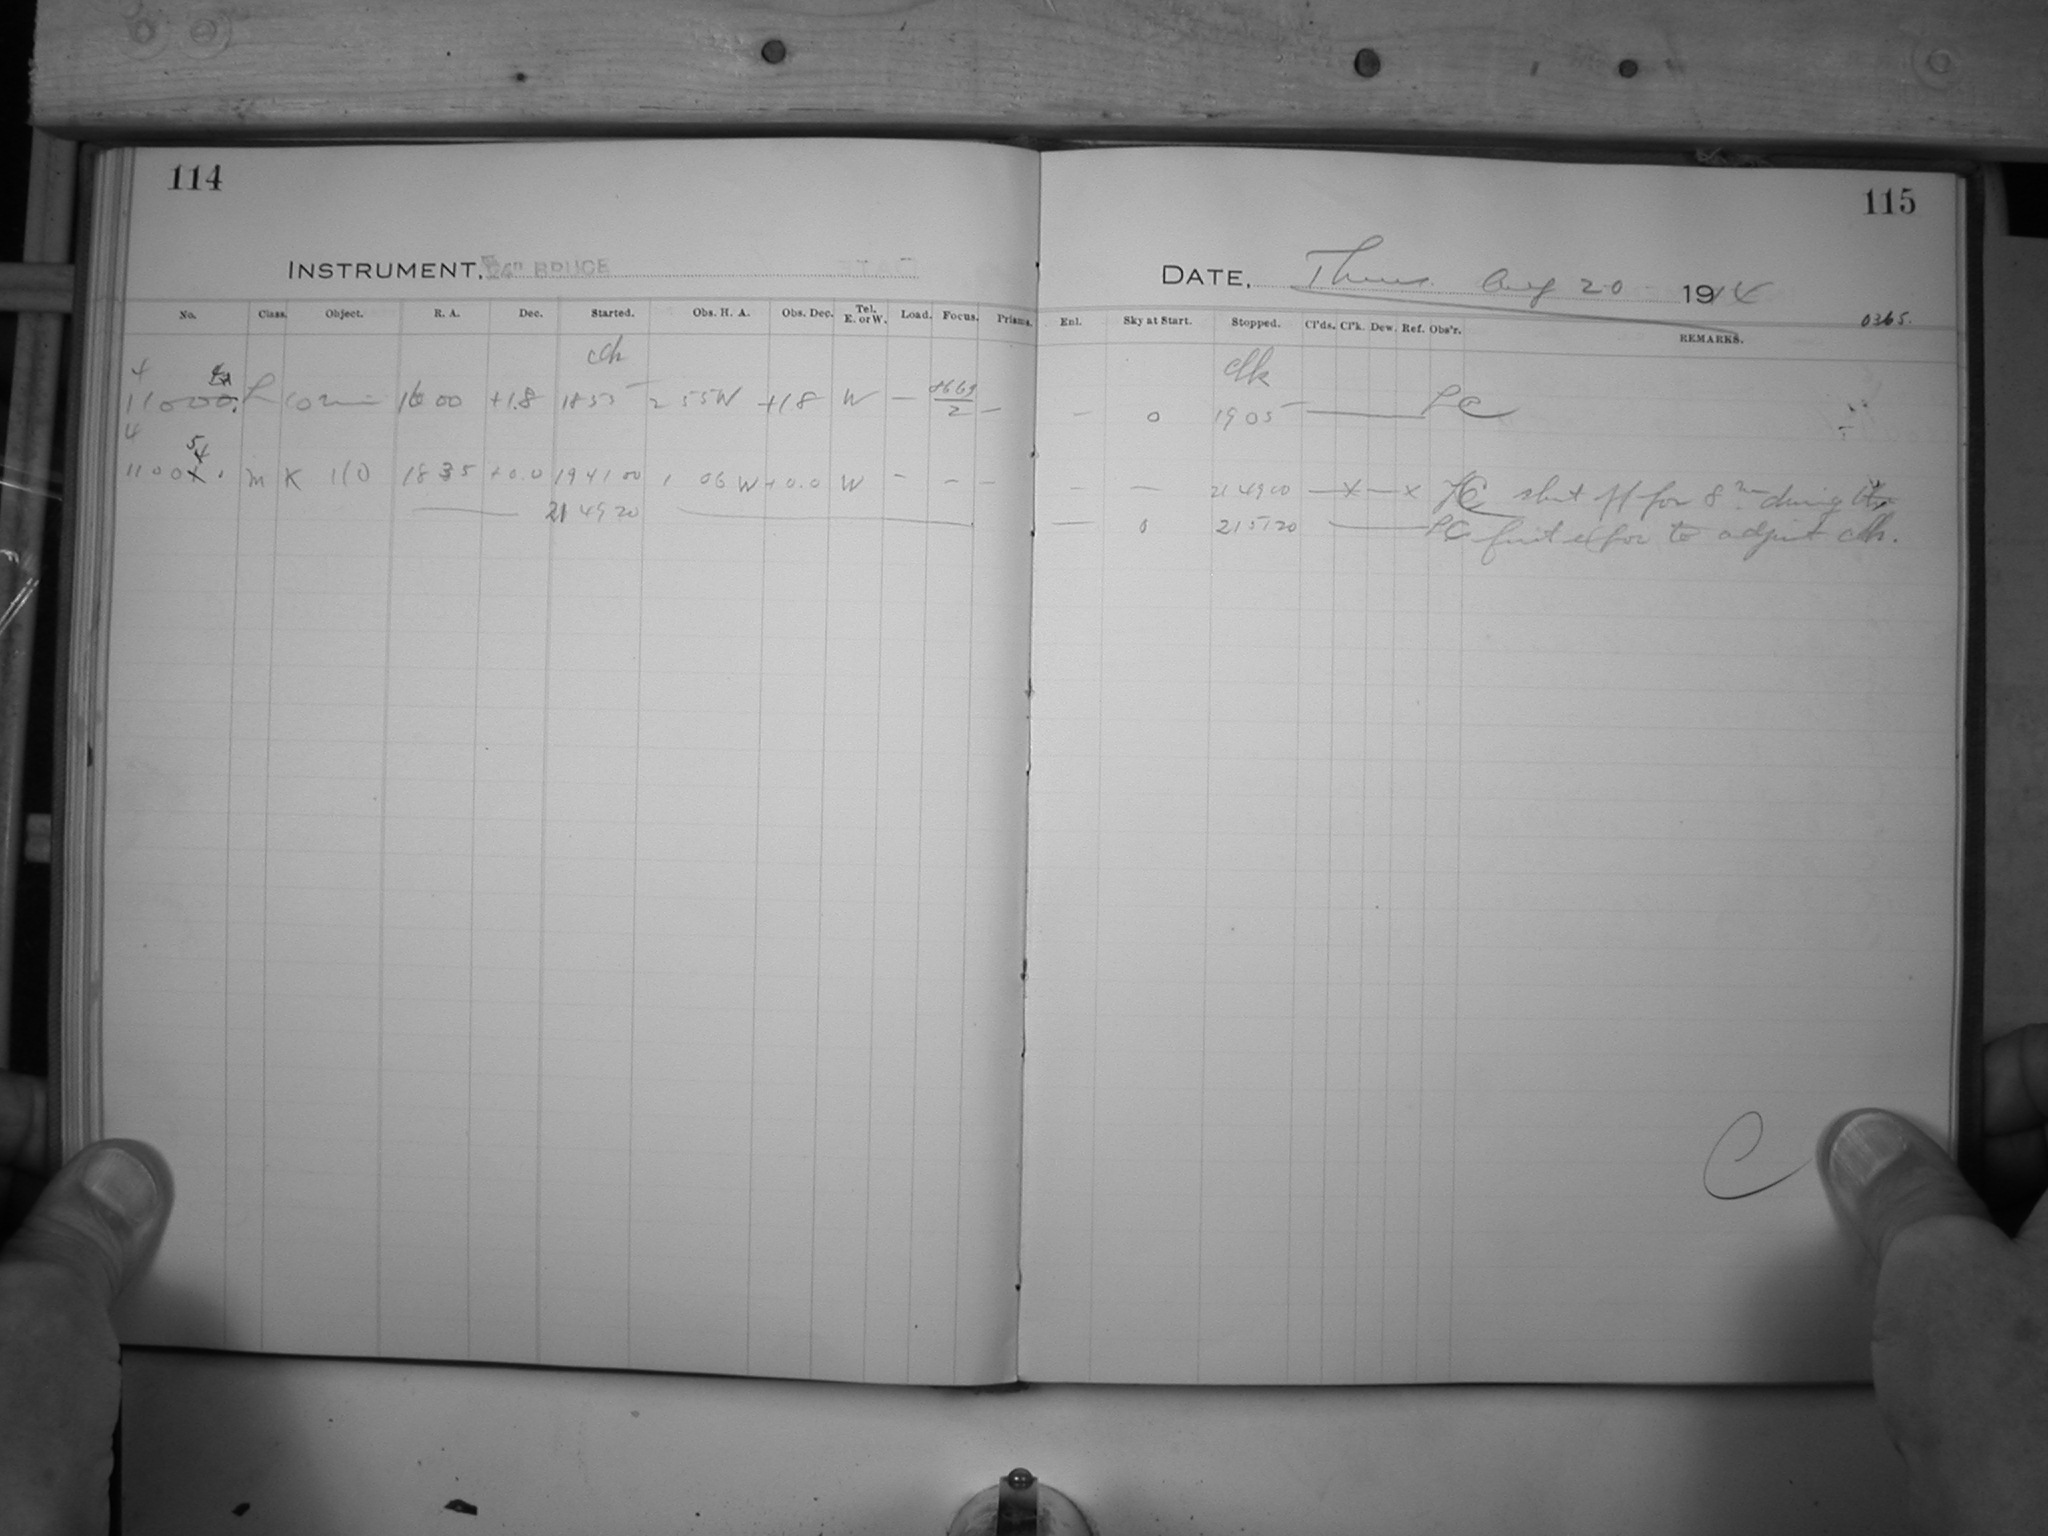 114
INSTRUMENT, 24" BRUCE
No. Class. Object. R. A. Dec. Started. Obs. H. A. Obs. Dec. Tel. E. or W. Load. Focus. Prisms.
clk
4
11000. L 16 00 +1.8 1855 2 55W +1.8 W — 2 —
4
54
1100 M K 110 18 35 +0.0 19 41 00 1 06 W +0.0 W – – –
21 49 20
115
DATE, Thurs. Aug 20 1914
0365.
Enl. Sky at Start. Stopped. Cl'ds. Cl'k. Dew. Ref. Obs'r. REMARKS.
clk
– 0 1905 LC
– — 21 49 00 —x—x shut off for 8m during the
— 0 21 51 20 LC first expos to adjust clk.
C